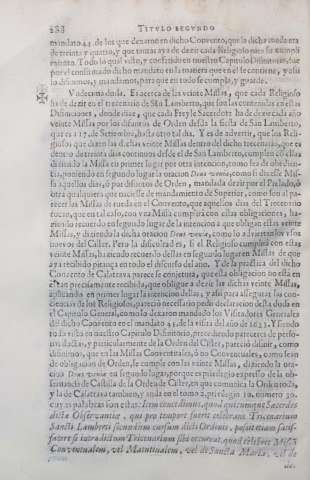 238 TITVLO SEGVNDO
mandato 43. de los que dexaron en dicho Convento, que la dicha moderen
de treinta y quatro, y que tantas aya de dezir cada Religioso
Todo lo qual visto, y conferido en nuestro Capitulo Difinitorio, fue
por el confirmado dicho mandato en la manera que en el se contiene, y assi
lo difinimos, y mandamos, para que en todo se cumpla, y guarde.
Vndezima duda. Es acerca de las veinte Missas, que cada Religioso
ha de dezir en el trecenario de San Lamberto, que son las contenidas en estas
Difiniciones, donde dize, que cada Freyle Sacerdote ha de dezir cada año
veinte Missas por los difuntos de Orden desde la fiesta de San Lamberto,
que es a 17. de Setiembre, hasta otro tal dia. Y es de advertir, que los Religiosos
que dizen las dichas veinte Missas dentro del dicho trecenario, que es
dentro de treinta dias continuos desde el de San Lamberto, cumplen con ellas
diziendo la Missa en primer lugar por otra intencion, como sea de obediencia,
poniendo en segundo lugar la oracion Deus veniae, como si dixesse Missa
aquellos dias, ò por difuntos de Orden, mandada dezir por el Prelado, ò
otra qualquiera que naciesse de mandamiento de Superior, como son al parecer
las Missas de rueda en el Convento, que aquellos dias del Trecenario
tocare, que en tal caso, con vna Missa cumplirà con estas obligaciones, haziendo
recuerdo en segundo lugar de la intencion a que obligan estas veinte
Missas, y diziendo la dicha oracion Deus veniae, como lo advierten los vsos
nuevos del Cister. Pero la dificultad es, si el Religioso cumplirà con estas
veinte Missas, haziendo recuerdo dellas en segundo lugar en Missas de que
aya recebido pitança en todo el discurso del año. Y de la practica del dicho
Convento de Calatrava parece se conjetura, que esta obligacion no està en
el tan precisamente recibida, que obligue a dezir las dichas veinte Missas,
aplicando en primer lugar la intencion dellas; y assi para assegurar las conciencias
de los Religiosos, pareciò necessario pedir declaracion desta duda en
el Capitulo General, como lo dexaron mandado los Visitadores Generales
del dicho Convento en el mandato 44. de la visita del año de 1653. Y siendo
tratada en nuestro Capitulo Difinitorio, precediendo pareceres de personas
doctas, y particularmente de la Orden del Cister, pareciò difinir, como
difinimos, que en las Missas Conventuales, ò no Conventuales, como sean
de obligacion de Orden, se cumple con las veinte Missas, diziendo la oracion
Deus veniae en segundo lugar, por que es privilegio expresso de la observancia
de Castilla de la Orden de Cister, en que comunica la Orden toda,
y la de Calatrava tambien, y anda en el tomo 2. privilegio 10. numero 30.
cuyas palabras son estas: Item concedimus, quod quicumque Sacerdos
dictæ Observantiæ, qui pro tempore fuerit celebrans Tricenarium
Sancti Lamberti secundum cursum dicti Ordinis, possit etiam satisfacere
si intra dictum Tricenarium sibi occurrat, quod celebret Missam
Conventualem, vel Matutinalem, vel de Sancta Maria, vel de